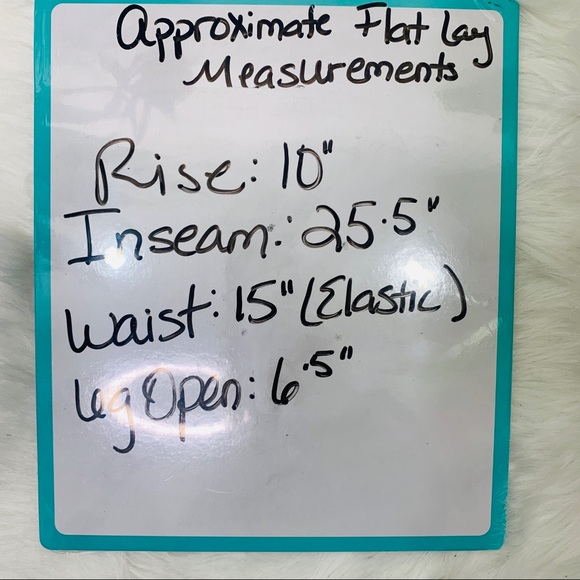 Approximate Flat Lay
Measurements
Rise: 10"
Inseam: 25.5"
Waist: 15" (Elastic)
Leg Open: 6.5"